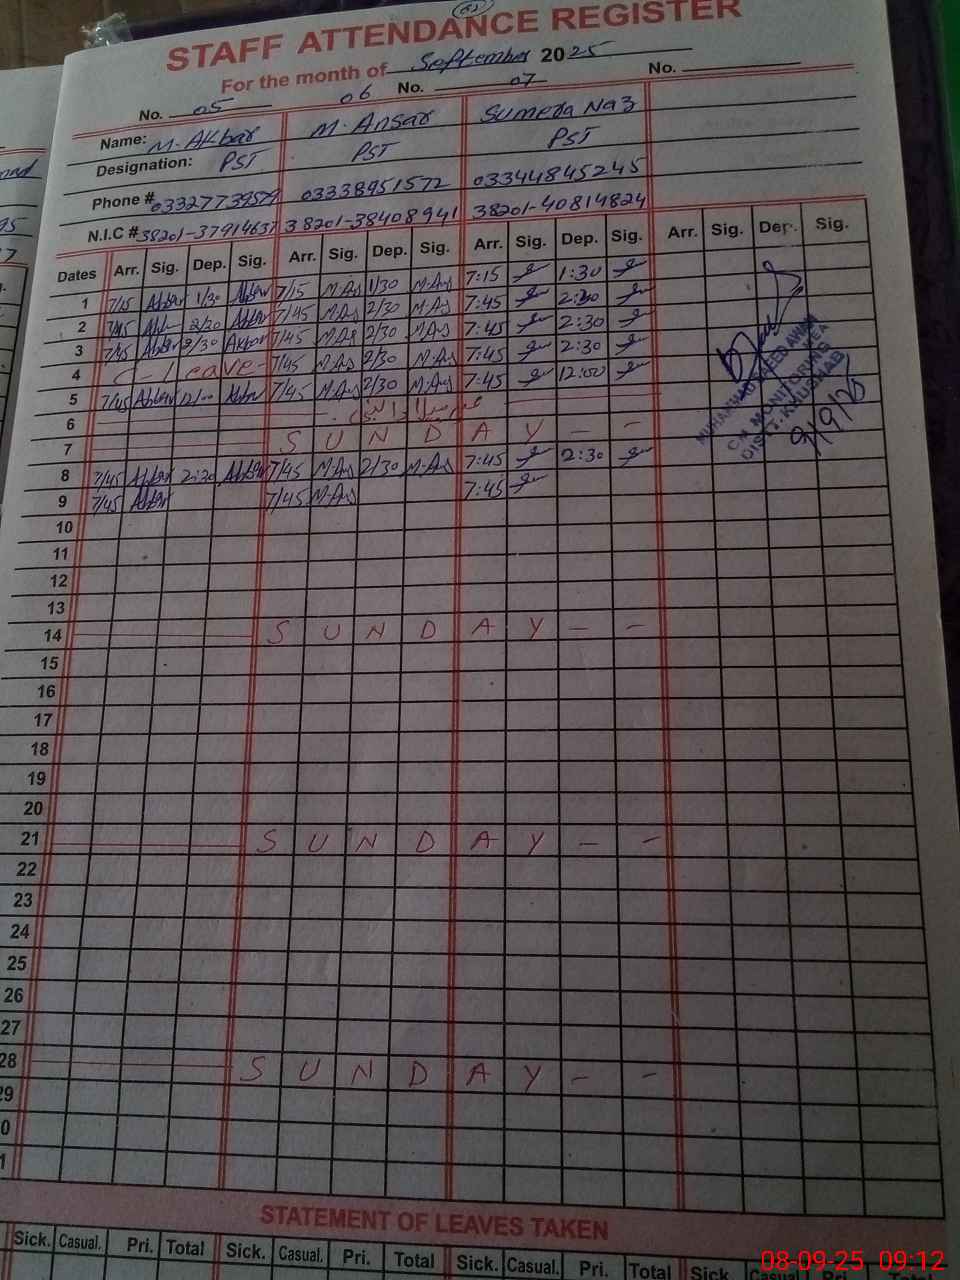 62
STAFF ATTENDANCE REGISTER
For the month of September 2025
No. 05 06 No. 07 No.
Name: M. Akbar M. Ansar Sumera Naz
Designation: PST PST PST
Phone # 03327739579 03338951572 03344845245
N.I.C # 38201-37914637 38201-38408941 38201-40814824
Dates Arr. Sig. Dep. Sig. Arr. Sig. Dep. Sig. Arr. Sig. Dep. Sig. Arr. Sig. Dep. Sig.
1 7/15 Akbar 1/30 Akbar 7/15 M.Ans 1/30 M.Ans 7:15 1:30
2 7/45 2/30 Akbar 7/45 M.Ans 2/30 M.Ans 7:45 2:30
3 7/45 Akbar 2/30 Akbar 7/45 M.Ans 2/30 M.Ans 7:45 2:30
4 C-Leave- 7/45 M.Ans 2/30 M.Ans 7:45 2:30
5 7/45 Akbar 12/00 Akbar 7/45 M.Ans 2/30 M.Ans 7:45 12:00
6 عید میلاد النبی
7 SUNDAY - -
8 7/45 Akbar 2:30 Akbar 7/45 M.Ans 2/30 M.Ans 7:45 2:30
9 7/45 Akbar 7/45 M.Ans 7:45
MUHAMMAD WAHEED AWAN
CM MONITORING
DISTT. KHUSHAB
9/9/25
10
11
12
13
14 SUNDAY - -
15
16
17
18
19
20
21 SUNDAY - -
22
23
24
25
26
27
28 SUNDAY - -
29
0
1
STATEMENT OF LEAVES TAKEN
Sick. Casual. Pri. Total Sick. Casual. Pri. Total Sick. Casual. Pri. Total Sick. Casual Pri. Total
08-09-25 09:12